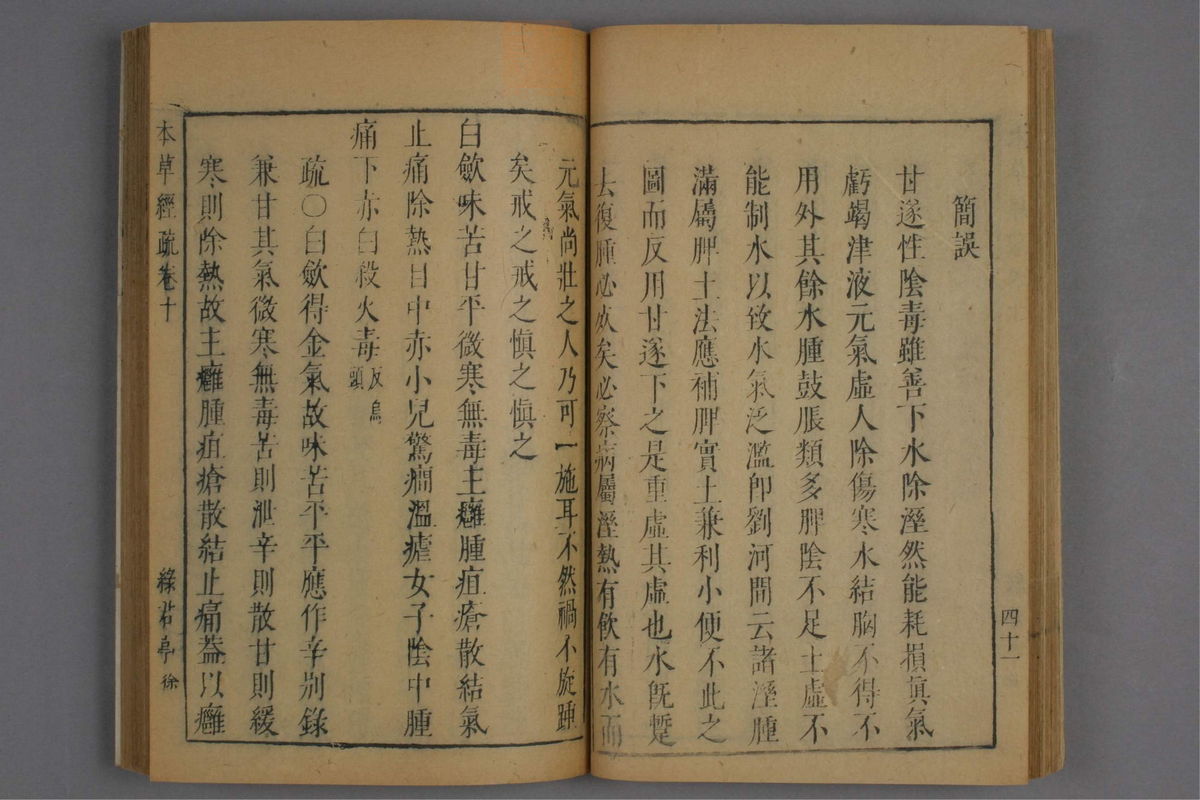 簡誤
甘遂性陰毒雖善下水除溼然能耗損眞氣
虧竭津液元氣虛人除傷寒水結胸不得不
用外其餘水腫鼓脹類多脾陰不足土虛不
能制水以致水氣泛濫卽劉河間云諸溼腫
滿屬脾土法應補脾實土兼利小便不此之
圖而反用甘遂下之是重虛其虛也水旣蹔
去復腫必矣必察病屬溼熱有飲有水而
四十一
元氣尚壯之人乃可一施耳不然禍不旋踵
矣戒之戒之愼之愼之
白斂味苦甘平微寒無毒主癰腫疽瘡散結氣
止痛除熱目中赤小兒驚癎溫瘧女子陰中腫
痛下赤白殺火毒反烏頭
疏〇白斂得金氣故味苦平平應作辛别錄
兼甘其氣微寒無毒苦則泄辛則散甘則緩
寒則除熱故主癰腫疽瘡散結止痛葢以癰
本草經疏卷十
綠君亭 徐